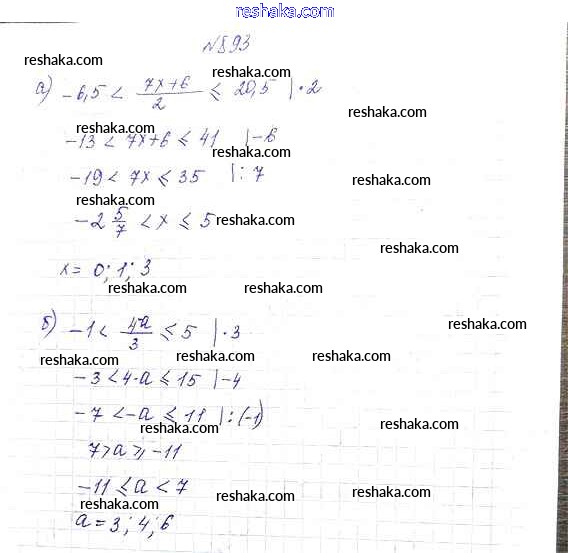 reshaka.com
№893
reshaka.com
reshaka.com
а) -6,5 < (7x+6)/2 ≤ 20,5 |·2
reshaka.com
reshaka.com
-13 < 7x+6 ≤ 41 |-6
reshaka.com
-19 < 7x ≤ 35 |: 7
reshaka.com
reshaka.com
-2 5/7 < x ≤ 5
reshaka.com
reshaka.com
x = 0; 1; 3
reshaka.com
reshaka.com
б) -1 < 4-a/3 ≤ 5 |·3
reshaka.com
reshaka.com
reshaka.com
reshaka.com
-3 < 4-a ≤ 15 |-4
-7 < -a ≤ 11 |: (-1)
reshaka.com
reshaka.com
7 > a ≥ -11
-11 ≤ a < 7
reshaka.com
reshaka.com
reshaka.com
a = 3; 4; 6